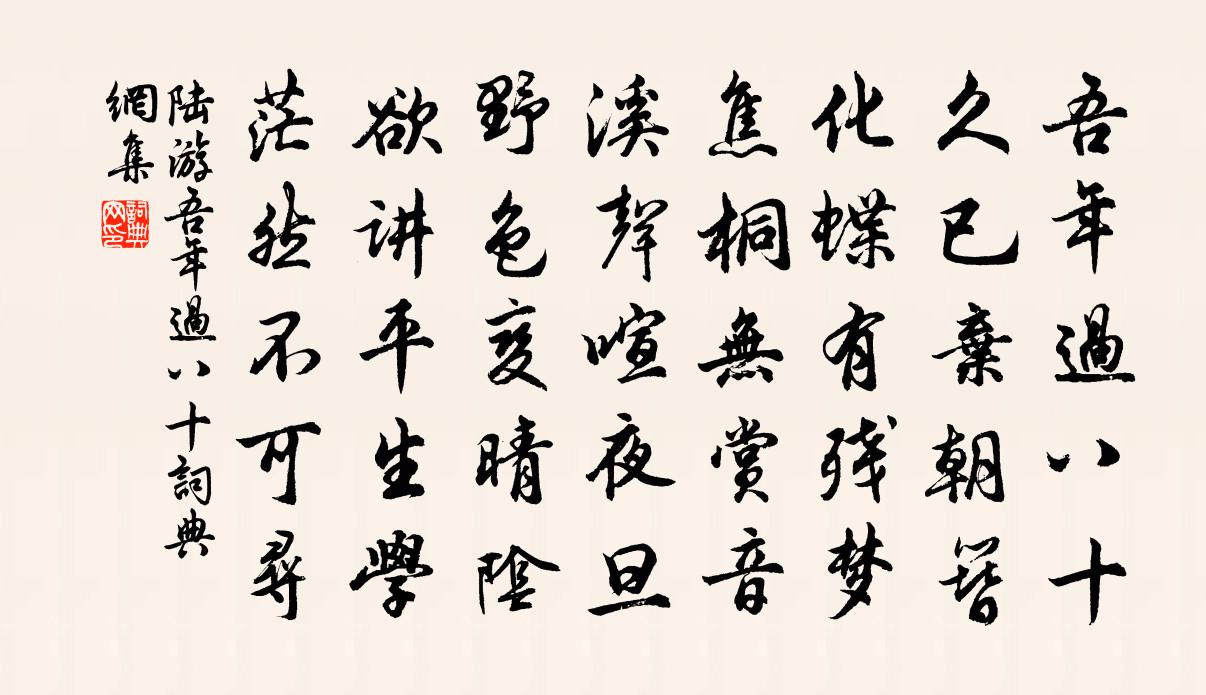 吾年過八十
久已棄朝簪
化蝶有残梦
焦桐無賞音
溪聲喧夜旦
野色变晴陰
欲讲平生學
茫然不可尋
陆游吾年過八十詞典
網集
詞典
网印